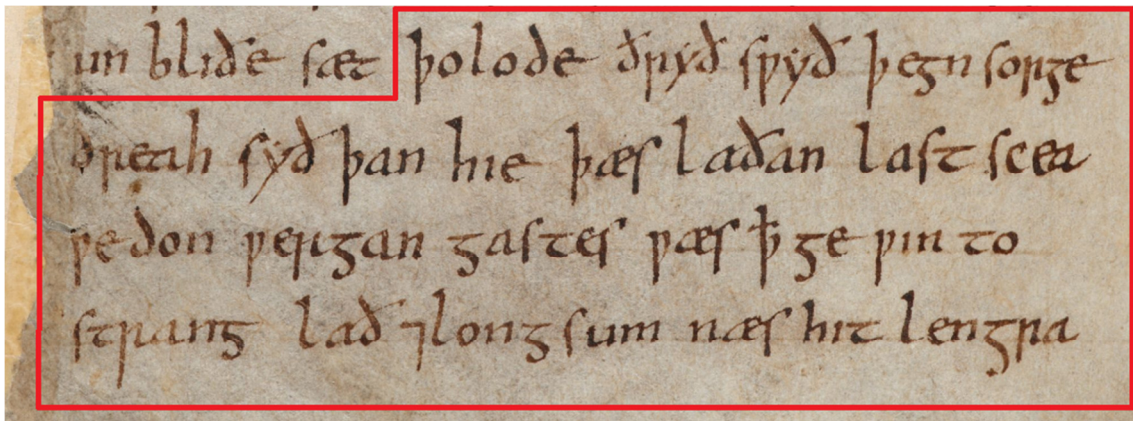 un bliðe sæt þolode ðryð sƿyð þegn sorge
dreah syð þan hie þæs laðan last scea
ƿedon ƿergan gastes ƿæs ꝥ ge ƿin to
strang lað ⁊ long sum næs hit lengra